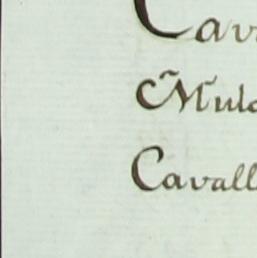 Cav
Mula
Cavall